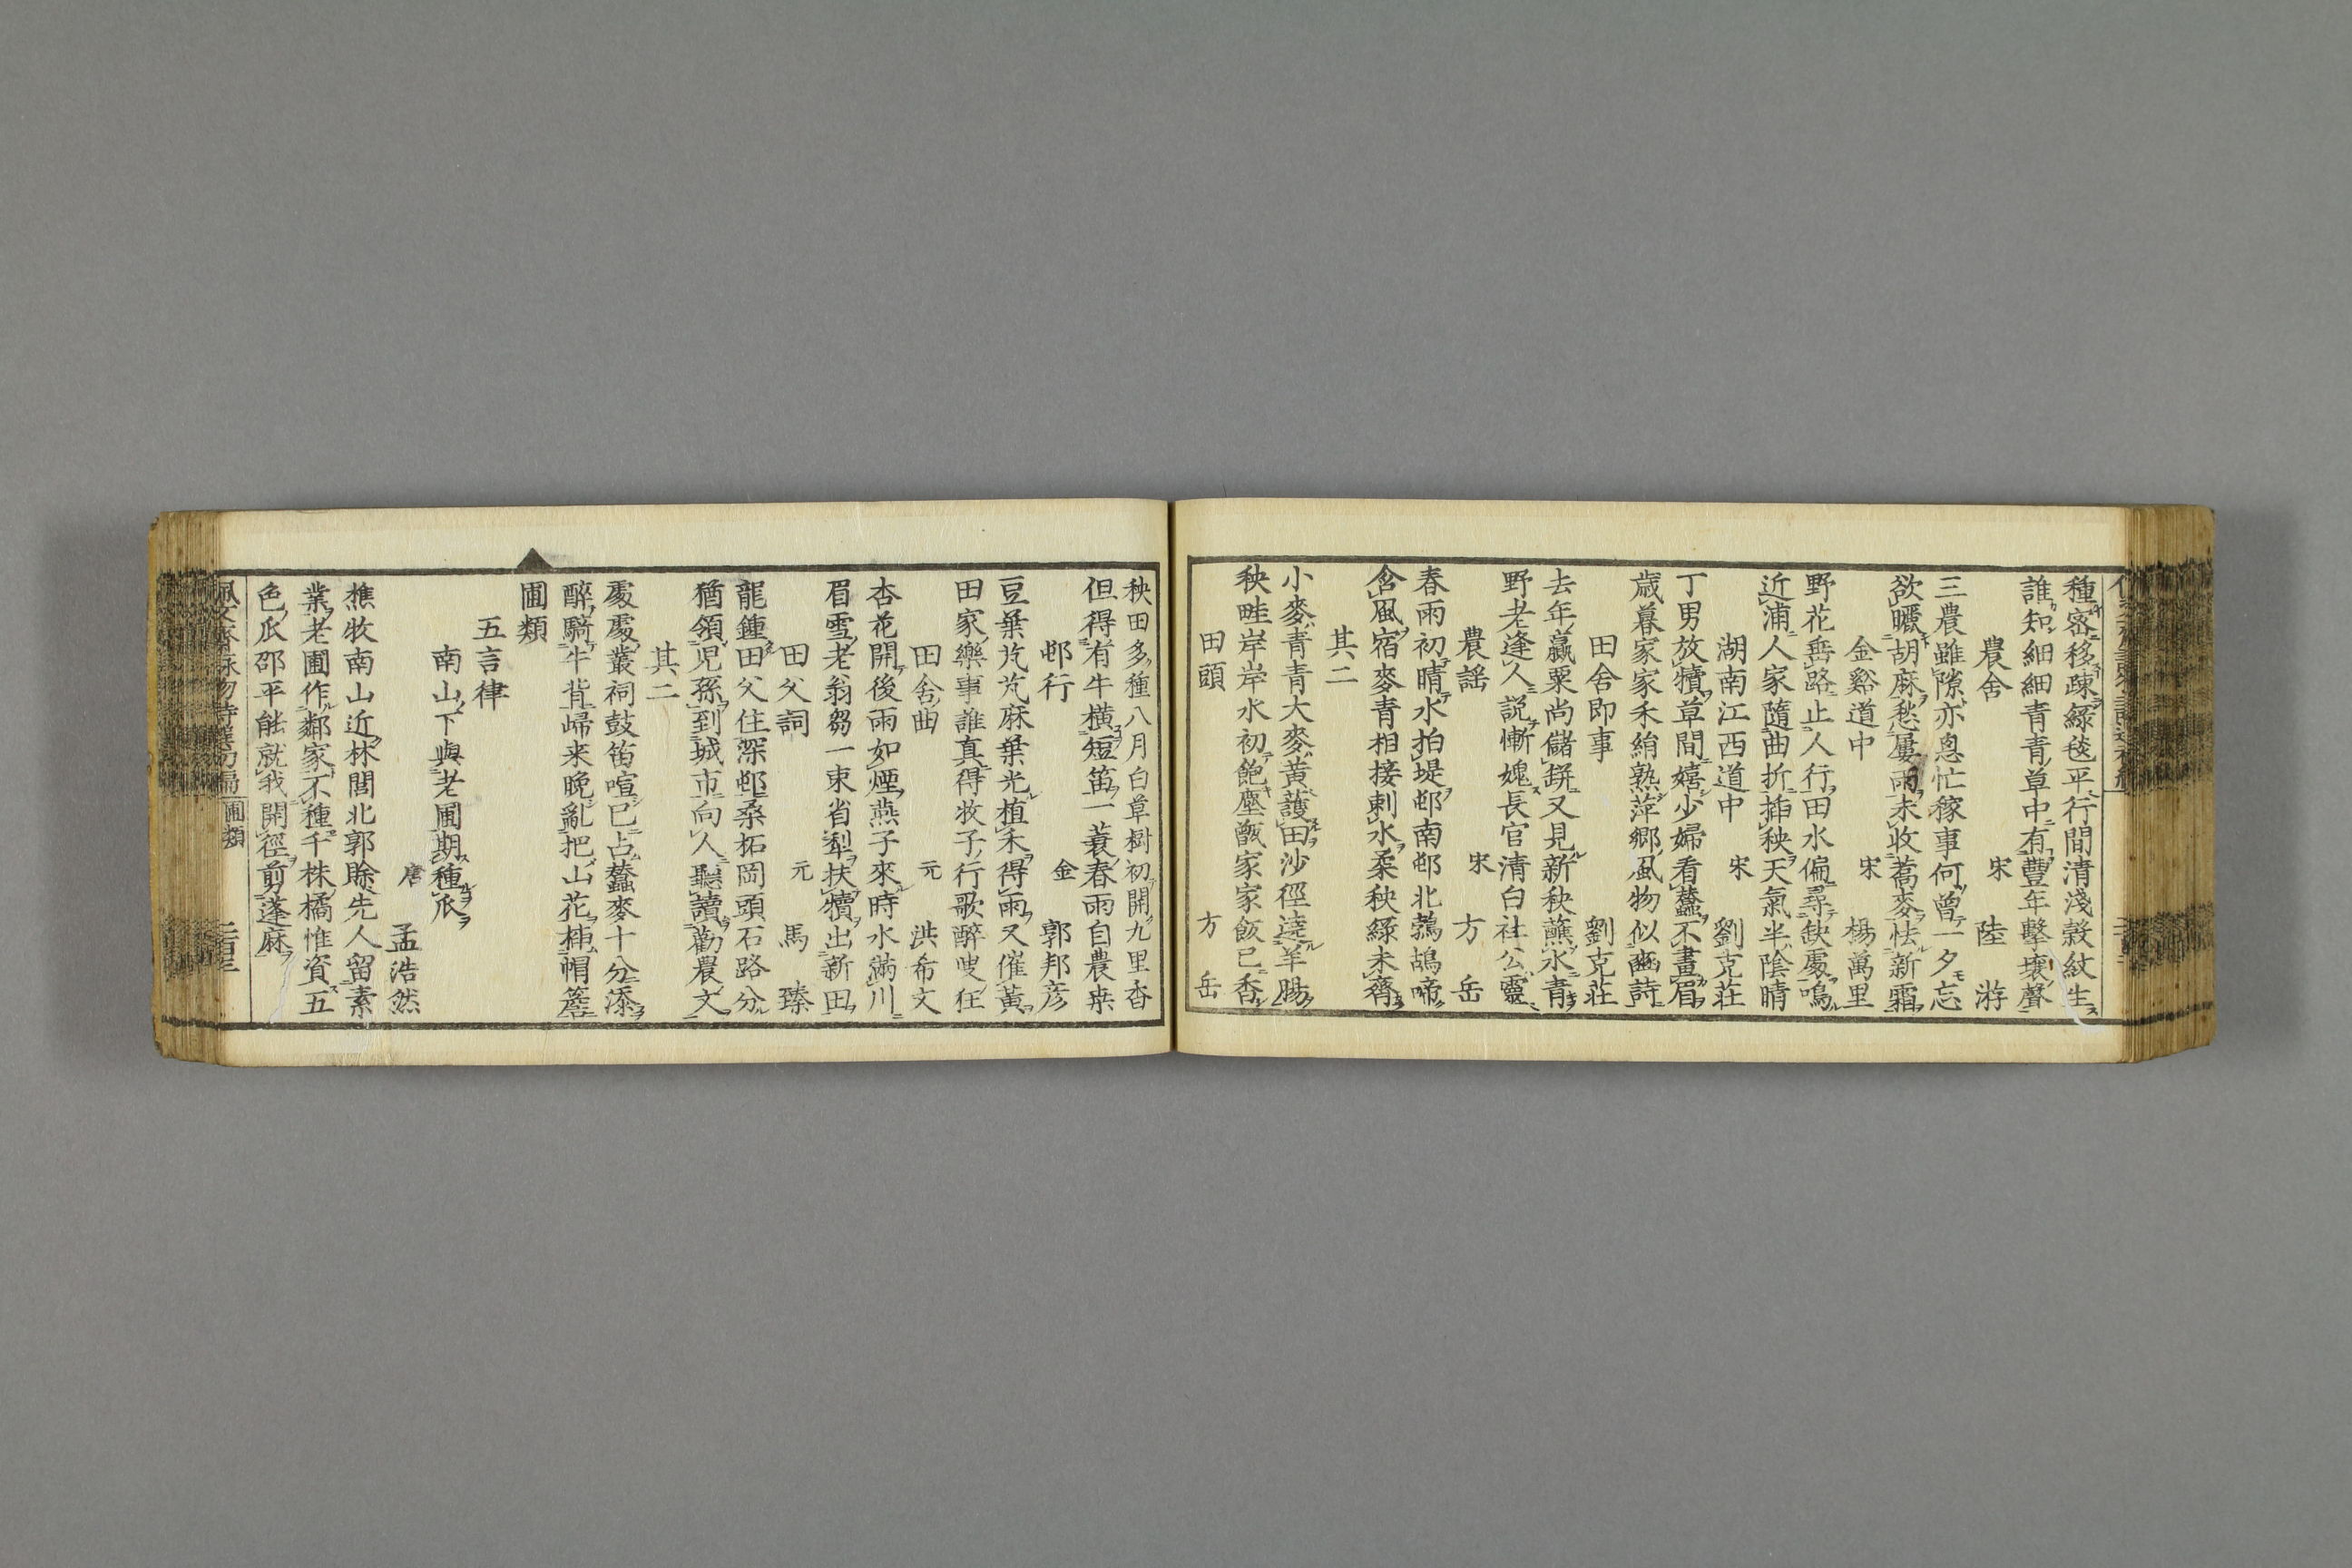 種密移疎綠毯平行間清淺縠紋生
誰知細細青青草中有豐年擊壤聲
農舍　宋　陸游
三農雖隙亦怱忙稼事何曾一夕忘
欲曬胡麻愁屢雨未收蕎麥怯新霜
金谿道中　宋　楊萬里
野花垂路止人行田水偏尋缺處鳴
近浦人家隨曲折挿秧天氣半陰晴
湖南江西道中　宋　劉克莊
丁男放犢草間嬉少婦看蠶不畫眉
歳暮家家禾絹熟萍鄉風物似豳詩
田舍即事　劉克莊
去年蠃粟尚儲缾又見新秧蘸水青
野老逢人説慚媿長官清白社公靈
農謡　宋　方岳
春雨初晴水拍堤邨南邨北鵓鴣啼
含風宿麥青相接刺水柔秧綠未齊
其二
小麥青青大麥黃護田沙徑遶羊腸
秧畦岸岸水初飽塵甑家家飯已香
田頭　方岳
秧田多種八月白草樹初開九里香
但得有牛橫短笛一蓑春雨自農桒
邨行　金　郭邦彦
豆葉芃芃麻葉光植禾得雨又催黃
田家樂事誰真得牧子行歌醉叟狂
田舍曲　元　洪希文
杏花開後雨如煙燕子來時水滿川
眉雪老翁芻一束省犁扶犢出新田
田父詞　元　馬臻
龍鍾田父住深邨桑柘岡頭石路分
猶領児孫到城市向人聽讀勸農文
其二
處處叢祠鼓笛喧已占蠶麥十分添
醉騎牛背歸来晩亂把山花插帽簷
圃類
五言律
南山下與老圃期種瓜
唐　孟浩然
樵牧南山近林閭北郭賖先人留素
業老圃作鄰家不種千株橘惟資五
色瓜邵平能就我開徑剪蓬麻
佩文齋詠物詩選初編　圃類